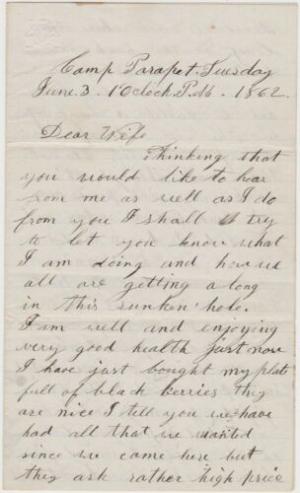 Camp Parapet. Tuesday
June. 3. 1 Oclock P.M. 1862.
Dear Wife
Thinking that
you would like to hear
from me as well as I do
from you I shall try
to let you know what
I am doing and how we
all are getting a long
in this sunken hole.
I am well and enjoying
very good health just now
I have just bought my plate
full of black berries they
are nice I tell you we have
had all that we wanted
since we came here but
they ask rather high price